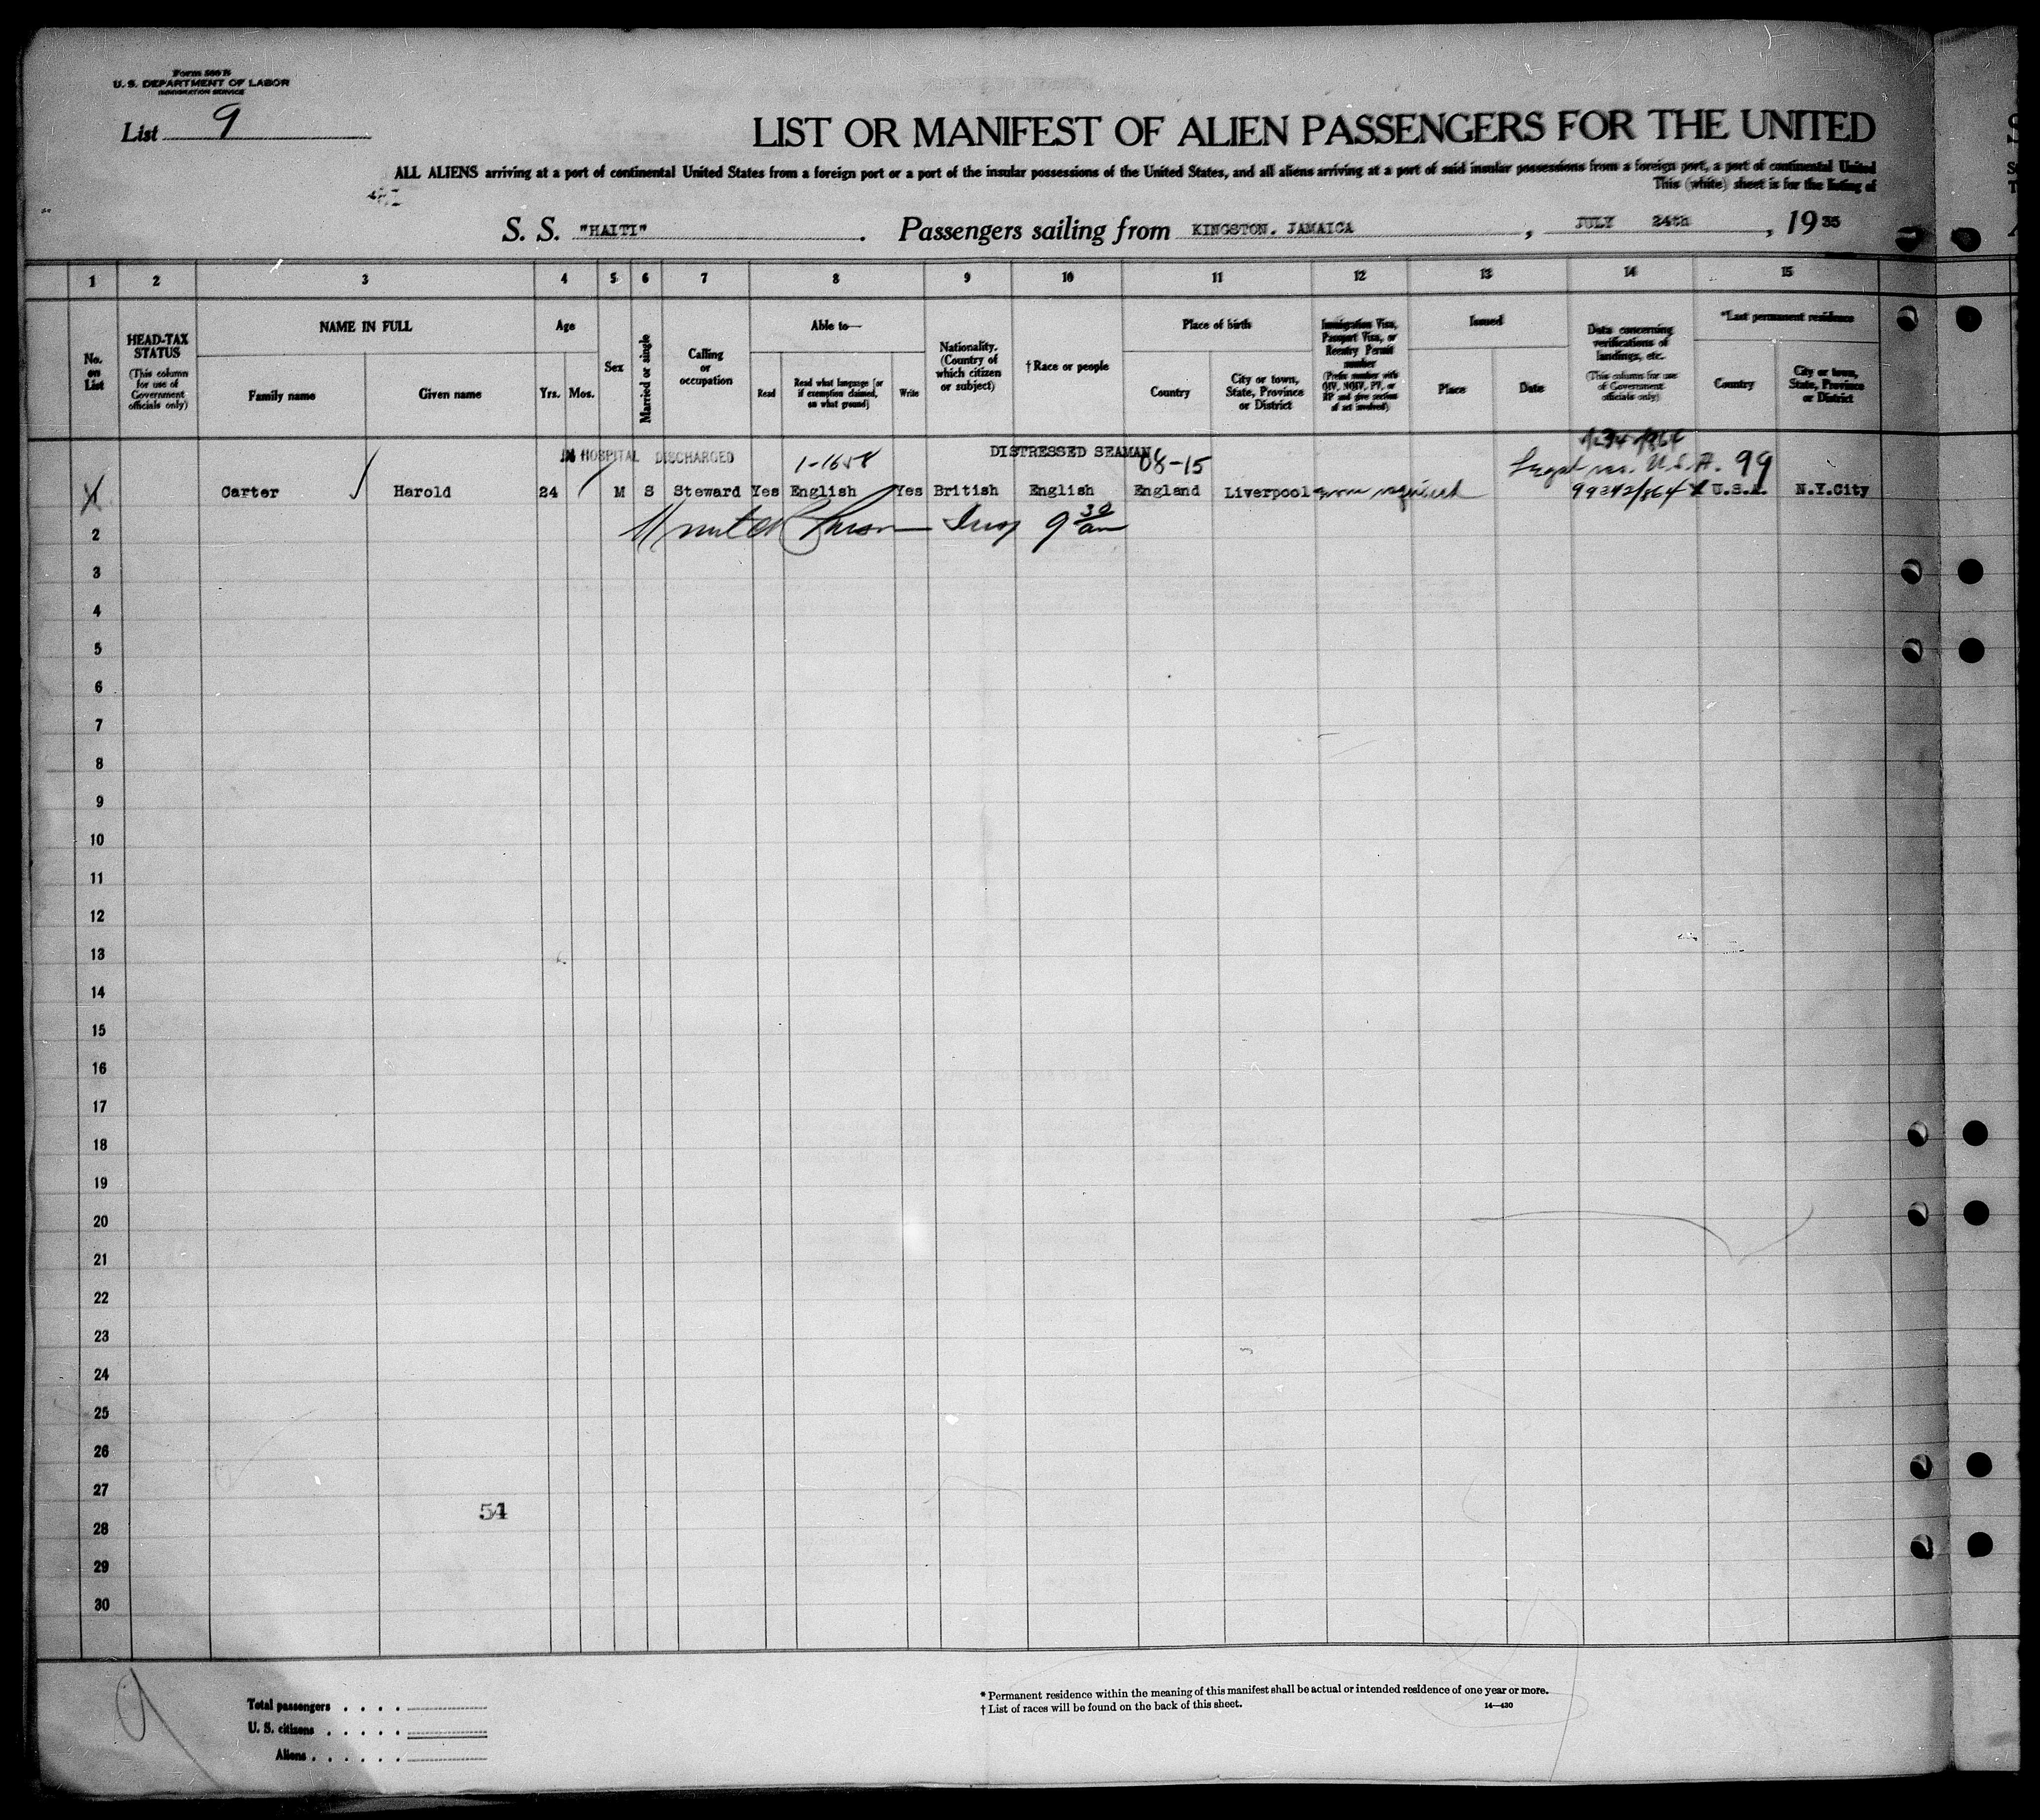 Form 500 B
U. S. DEPARTMENT OF LABOR
IMMIGRATION SERVICE
List 9
LIST OR MANIFEST OF ALIEN PASSENGERS FOR THE UNITED
ALL ALIENS arriving at a port of continental United States from a foreign port or a port of the insular possessions of the United States, and all aliens arriving at a port of said insular possessions from a foreign port, a port of continental United
This (white) sheet is for the listing of
S. S. "HAITI". Passengers sailing from KINGSTON, JAMAICA, JULY 24th, 1935
1 2 3 4 5 6 7 8 9 10 11 12 13 14 15
No. on List
HEAD-TAX STATUS
(This column for use of Government officials only)
NAME IN FULL
Family name
Given name
Age
Yrs.
Mos.
Sex
Married or single
Calling or occupation
Able to—
Read
Read what language [or if exemption claimed, on what ground]
Write
Nationality. (Country of which citizen or subject)
†Race or people
Place of birth
Country
City or town, State, Province or District
Immigration Visa, Passport Visa, or Reentry Permit number
(Prefix number with QIV, NQIV, PV, or RP and give section of act involved)
Issued
Place
Date
Data concerning verifications of landings, etc.
(This column for use of Government officials only)
*Last permanent residence
Country
City or town, State, Province or District
IN HOSPITAL DISCHARGED 1-1658 DISTRESSED SEAMAN 08-15
U.S.A. 99
1 Carter Harold 24 M S Steward Yes English Yes British English England Liverpool none required 99242/864 U.S.A. N.Y.City
2 9 30 am
3
4
5
6
7
8
9
10
11
12
13
14
15
16
17
18
19
20
21
22
23
24
25
26
27
54
28
29
30
9
Total passengers
U. S. citizens
Aliens
* Permanent residence within the meaning of this manifest shall be actual or intended residence of one year or more.
† List of races will be found on the back of this sheet. 14—430